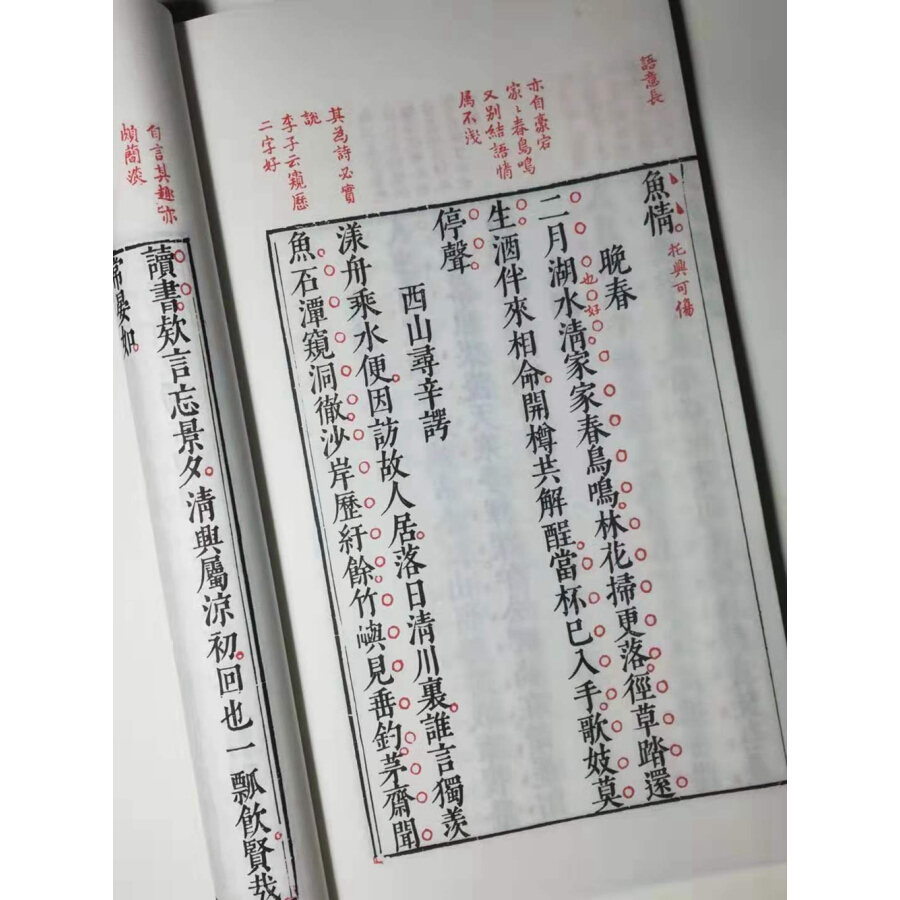 語意長
亦自豪宕
家〻春鳥鳴
又別結語情
属不淺
其為詩必實
說
李子云窺歷
二字好
魚情
托興可傷
晚春
二月湖水清家家春鳥鳴林花掃更落徑草踏還
也好
生酒伴來相命開樽共解酲當杯巳入手歌妓莫
停聲
西山尋辛諤
漾舟乘水便因訪故人居落日清川裏誰言獨羨
魚石潭窺洞徹沙岸歷紆餘竹嶼見垂釣茅齋聞
自言其趣亦
頗蕳淡
讀書欵言忘景夕清興屬涼初回也一瓢飲賢哉
常晏如